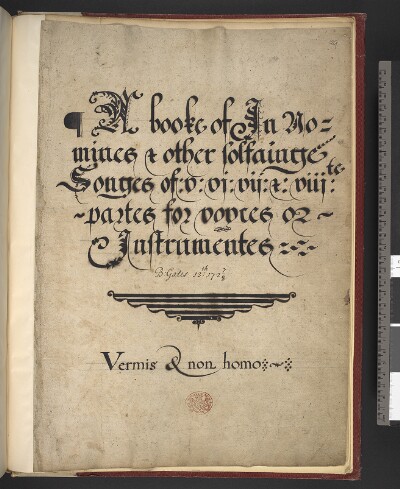 ¶ A booke of In No=
mines & other solfainge
Songes of: v: vj: vij: &: viij:te
~partes for voyces or~
Instrumentes
B Gates 12th 172⅞
Vermis & non homo